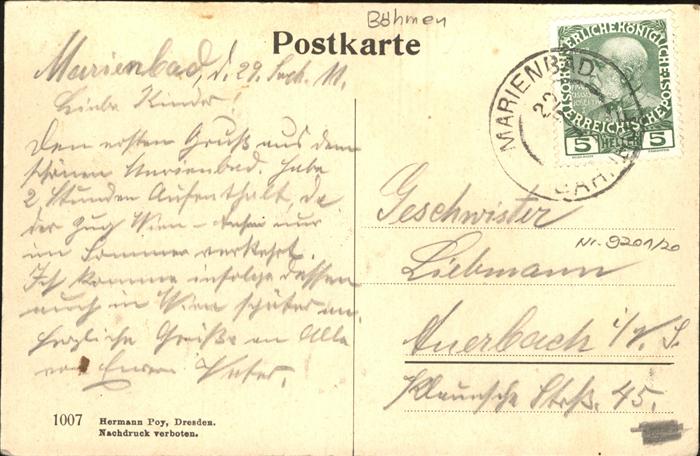 Böhmen
Postkarte
Marienbad, d. 29. Sept. 11.
Liebe Kinder!
Den ersten Gruß aus dem
schönen Marienbad. Habe
2 Stunden Aufenthalt, da
der Zug Wien - nur
im Sommer verkehrt.
Ich komme infolge dessen
auch in Wien später an.
Herzliche Grüße an Alle
von Eurem Vater.
MARIENBAD
22
5 HELLER 5
Geschwister
Nr. 9201/20
Liebmann
Auerbach i/V. S.
Str. 45.
1007 Hermann Poy, Dresden.
Nachdruck verboten.